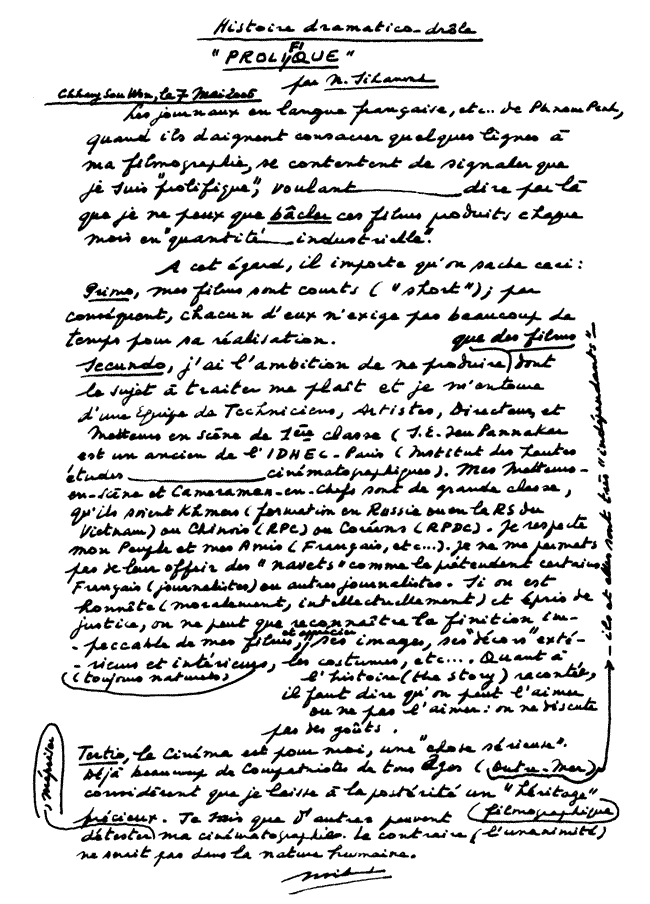 Histoire dramatico-drôle
"PROLIFIQUE"
par N. Sihanouk
Chhang Sou Won, le 7 Mai 2005
Les journaux en langue française, etc.. de Phnom Penh,
quand ils daignent consacrer quelques lignes à
ma filmographie, se contentent de signaler que
je suis "prolifique", voulant dire par là
que je ne peux que bâcler ces films produits chaque
mois en "quantité industrielle".
A cet égard, il importe qu'on sache ceci :
Primo, mes films sont courts ("short"); par
conséquent, chacun d'eux n'exige pas beaucoup de
temps pour sa réalisation.
que des films
Secundo, j'ai l'ambition de ne produire dont
le sujet à traiter me plaît et je m'entoure
d'une Equipe de Techniciens, Artistes, Directeurs et
Metteurs en scène de 1ère classe (S.E. Ieu Pannakar
est un ancien de l'IDHEC-Paris (Institut des hautes
études cinématographiques). Mes Metteurs-
en-scène et Cameramen-en-chefs sont de grande classe,
qu'ils soient Khmers (formation en Russie ou en la RS du
Vietnam) ou Chinois (RPC) ou Coréens (RPDC). Je respecte
mon Peuple et mes Amis (Français, etc...). Je ne me permets
pas de leur offrir des "navets" comme le prétendent certains
Français (journalistes) ou autres journalistes. Si on est
honnête (moralement, intellectuellement) et épris de
justice, on ne peut que reconnaître la finition im-
et apprécier
-peccable de mes films, ses images, ses "décors" exté-
-rieurs et intérieurs, les costumes, etc.... Quant à
(toujours naturels)
l'histoire (the story) racontée,
il faut dire qu'on peut l'aimer
ou ne pas l'aimer : on ne discute
pas des goûts.
Tertio, le Cinéma est pour moi, une "chose sérieuse".
Déjà beaucoup de Compatriotes de tous âges (Outre-Mer)
ils et elles sont très "indépendants"
considèrent que je laisse à la postérité un "héritage"
précieux. Je sais que d'autres peuvent (filmographique)
, mépriser
détester ma cinématographie. Le contraire (l'unanimité)
ne serait pas dans la nature humaine.